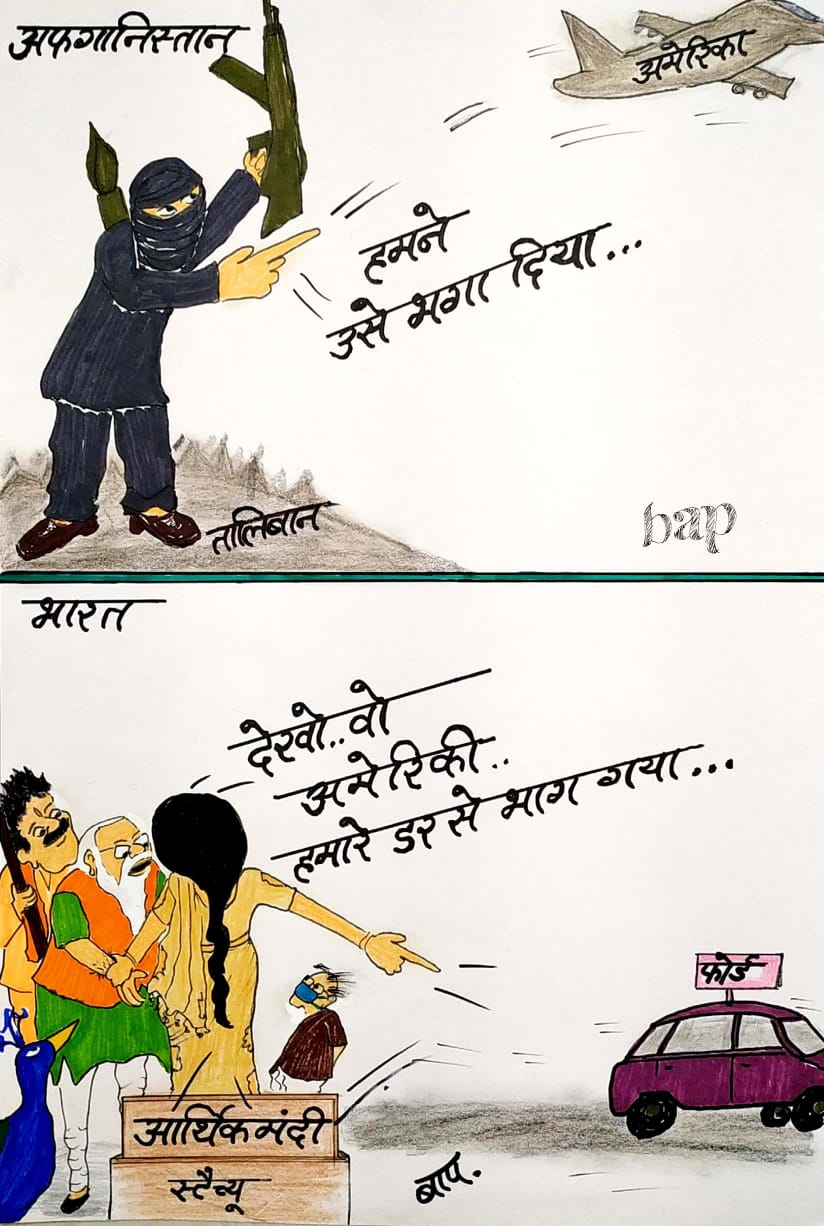 अफगानिस्तान
अमेरिका
हमने
उसे भगा दिया...
तालिबान
bap
भारत
देखो..वो
अमेरिकी..
हमारे डर से भाग गया...
फोर्ड
आर्थिक मंदी
स्टैच्यू
बाप.